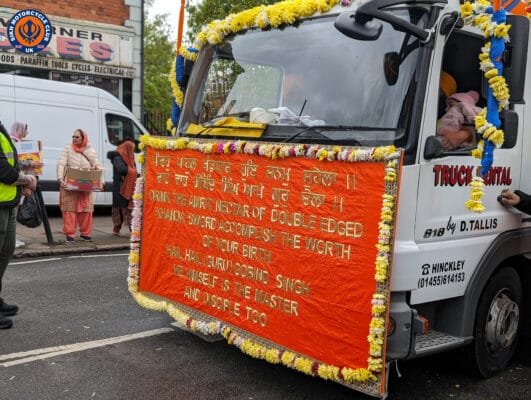 MOTORCYCLE CLUB
UK
NNER
ES
OODS · PARAFFIN · TOOLS · CYCLES · ELECTRICAL
ਪਿਵਹੁ ਪਾਹੁਲ ਖੰਡੇਧਾਰ ਹੋਇ ਜਨਮ ਸੁਹੇਲਾ ॥
ਵਾਹ ਵਾਹ ਗੋਬਿੰਦ ਸਿੰਘ ਆਪੇ ਗੁਰ ਚੇਲਾ ॥
DRINK THE AMRIT NECTAR OF DOUBLE EDGED
KHANDA SWORD ACCOMPLISH THE WORTH
OF YOUR BIRTH
HAIL HAIL (GURU) GOBIND SINGH
HE HIMSELF IS THE MASTER
AND DISCIPLE TOO
TRUCK RENTAL
818 by D.TALLIS
HINCKLEY
(01455) 614153